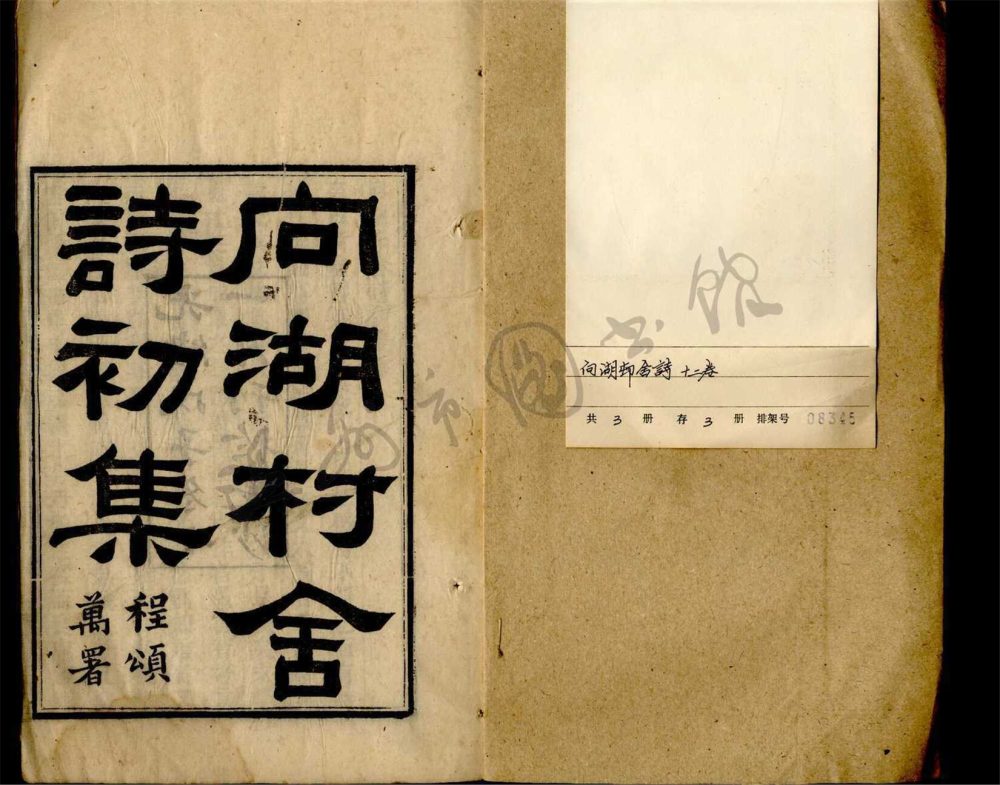 向湖村舍
詩初集
程頌
萬署
向湖邨舍詩 十二卷
共 3 册 存 3 册 排架号 08345
市圖书館